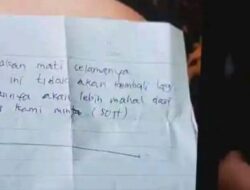 akan mati selamanya
ini tidak akan kembali lagi
akan lebih mahal dari
kami minta (50jt)